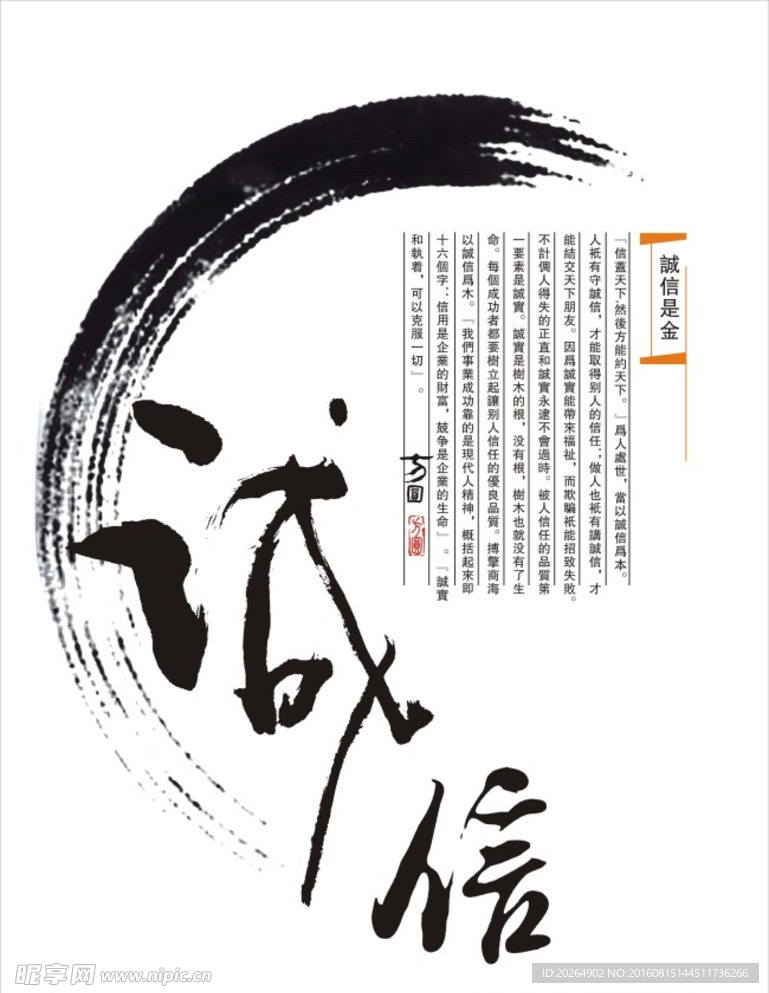 誠信是金
『信蓋天下,然後方能約天下。』爲人處世，當以誠信爲本。
人衹有守誠信，才能取得别人的信任；做人也衹有講誠信，才
能結交天下朋友。因爲誠實能帶來福祉，而欺騙衹能招致失敗。
不計個人得失的正直和誠實永逮不會過時。被人信任的品質第
一要素是誠實。誠實是樹木的根，没有根，樹木也就没有了生
命。每個成功者都要樹立起讓别人信任的優良品質。搏擎商海
以誠信爲木。『我們事業成功靠的是現代人精神，概括起來即
十六個字：信用是企業的財富，兢争是企業的生命』。『誠實
和執着，可以克服一切』。
方圓
方圓
誠信
昵享网 www.nipic.cn
ID:20264902 NO:20160815144511736266